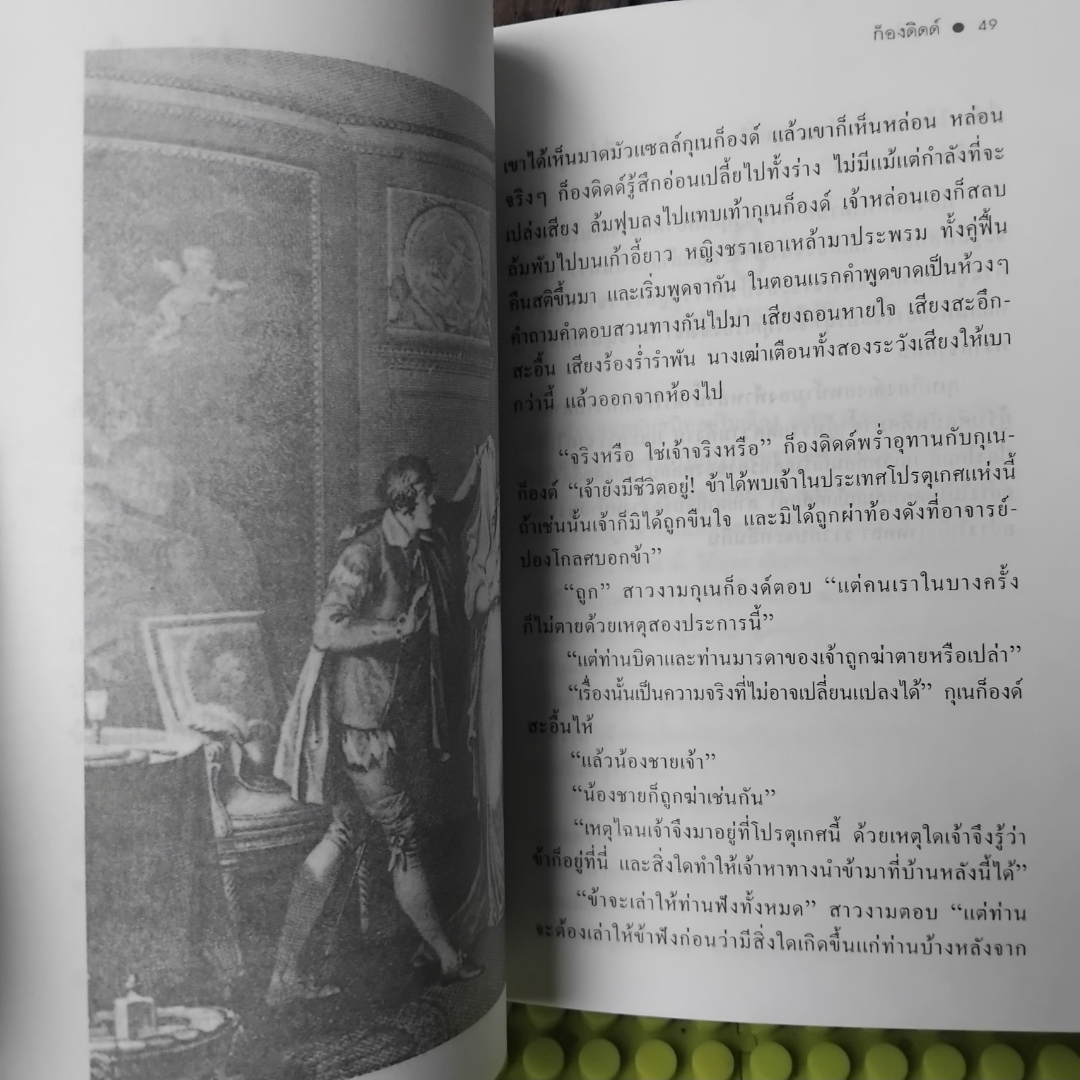 ก็องดิดด์ ● 49
เขาได้เห็นมาดมัวแซลล์กุเนก็องด์ แล้วเขาก็เห็นหล่อน หล่อน
จริงๆ ก็องดิดด์รู้สึกอ่อนเปลี้ยไปทั้งร่าง ไม่มีแม้แต่กำลังที่จะ
เปล่งเสียง ล้มฟุบลงไปแทบเท้ากุเนก็องด์ เจ้าหล่อนเองก็สลบ
ล้มพับไปบนเก้าอี้ยาว หญิงชราเอาเหล้ามาประพรม ทั้งคู่ฟื้น
คืนสติขึ้นมา และเริ่มพูดจากัน ในตอนแรกคำพูดขาดเป็นห้วงๆ
คำถามคำตอบสวนทางกันไปมา เสียงถอนหายใจ เสียงสะอึก-
สะอื้น เสียงร้องร่ำรำพัน นางเฒ่าเตือนทั้งสองระวังเสียงให้เบา
กว่านี้ แล้วออกจากห้องไป
“จริงหรือ ใช่เจ้าจริงหรือ” ก็องดิดด์พร่ำอุทานกับกุเน-
ก็องด์ “เจ้ายังมีชีวิตอยู่! ข้าได้พบเจ้าในประเทศโปรตุเกศแห่งนี้
ถ้าเช่นนั้นเจ้าก็มิได้ถูกขืนใจ และมิได้ถูกผ่าท้องดังที่อาจารย์-
ปองโกลศบอกข้า”
“ถูก” สาวงามกุเนก็องด์ตอบ “แต่คนเราในบางครั้ง
ก็ไม่ตายด้วยเหตุสองประการนี้”
“แต่ท่านบิดาและท่านมารดาของเจ้าถูกฆ่าตายหรือเปล่า”
“เรื่องนั้นเป็นความจริงที่ไม่อาจเปลี่ยนแปลงได้” กุเนก็องด์
สะอื้นไห้
“แล้วน้องชายเจ้า”
“น้องชายก็ถูกฆ่าเช่นกัน”
“เหตุไฉนเจ้าจึงมาอยู่ที่โปรตุเกศนี้ ด้วยเหตุใดเจ้าจึงรู้ว่า
ข้าก็อยู่ที่นี่ และสิ่งใดทำให้เจ้าหาทางนำข้ามาที่บ้านหลังนี้ได้”
“ข้าจะเล่าให้ท่านฟังทั้งหมด” สาวงามตอบ “แต่ท่าน
จะต้องเล่าให้ข้าฟังก่อนว่ามีสิ่งใดเกิดขึ้นแก่ท่านบ้างหลังจาก